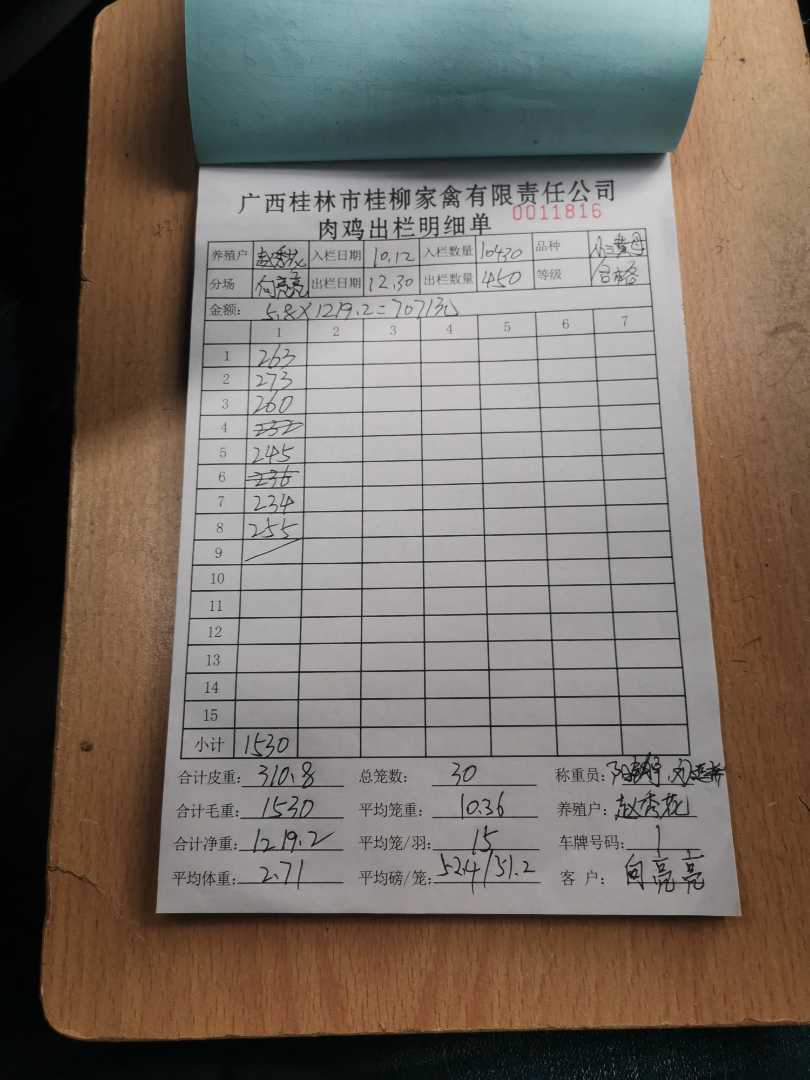 广西桂林市桂柳家禽有限责任公司
肉鸡出栏明细单 0011816
养殖户 赵秀花 入栏日期 10.12 入栏数量 10430 品种 小三黄母
分场 向亮亮 出栏日期 12.30 出栏数量 450 等级 合格
金额: 5.8×1219.2=7071元
1 2 3 4 5 6 7
1 263
2 273
3 260
4 232
5 245
6 236
7 234
8 255
9
10
11
12
13
14
15
小计 1530
合计皮重: 310.8 总笼数: 30 称重员:
合计毛重: 1530 平均笼重: 10.36 养殖户: 赵秀花
合计净重: 1219.2 平均笼/羽: 15 车牌号码:
平均体重: 2.71 平均磅/笼: 52.4/51.2 客户: 向亮亮